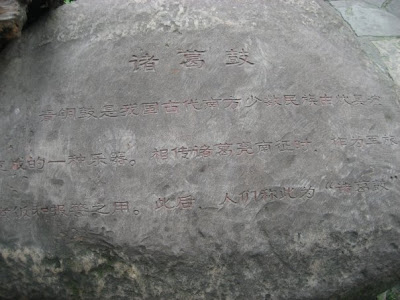 诸葛鼓
铜鼓是我国古代南方少数民族古代
的一种乐器。相传诸葛亮南征时，
之用。此后，人们称此为“诸葛鼓”